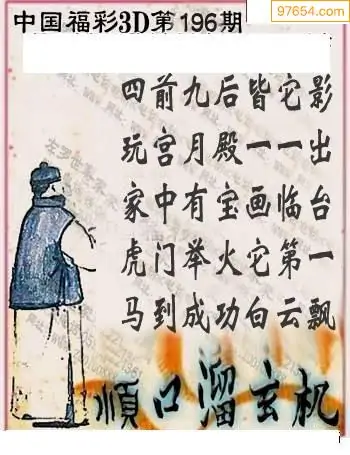 97654.com
中国福彩3D第196期
四前九后皆它影
玩宫月殿一一出
家中有宝画临台
虎门举火它第一
马到成功白云飘
顺口溜玄机